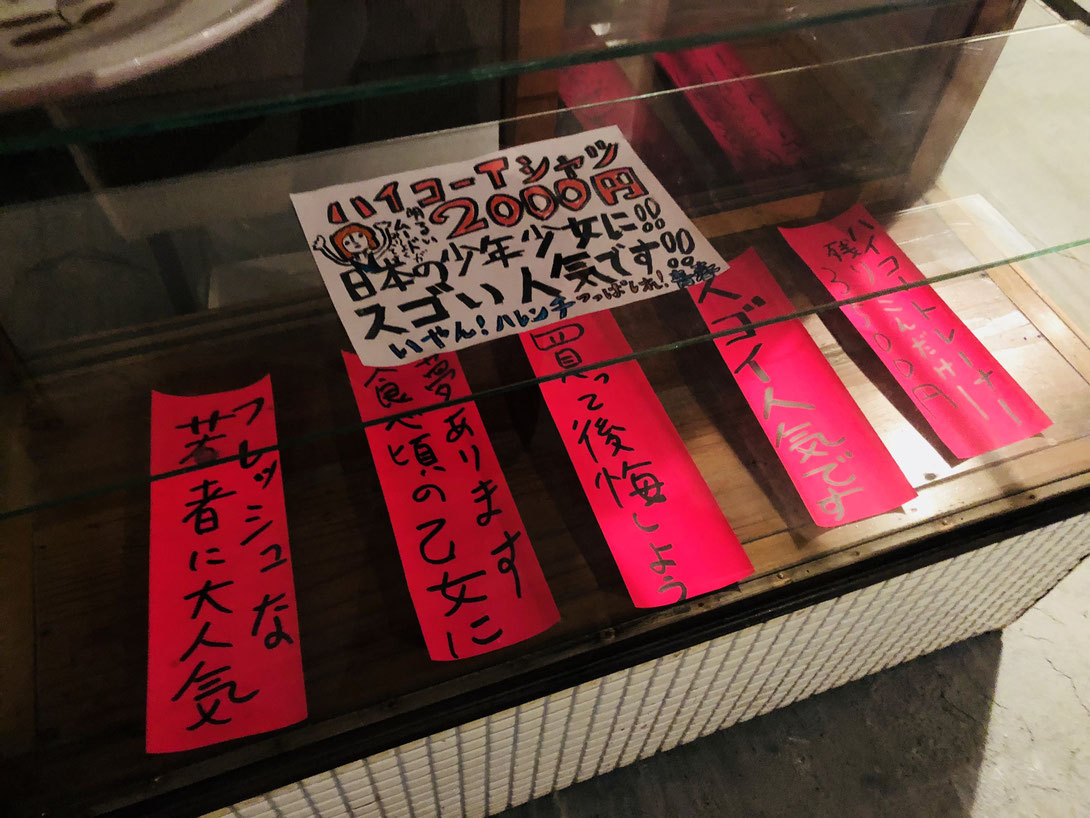 ハイコーTシャツ
2000円
日本の少年少女に!!
スゴい人気です!!
いやん!ハレンチつっぱしれ!青春
ハイコートレーナー
スゴイ人気です
買って後悔しよう
夢あります
食べ頃の乙女に
フレッシュな
若者に大人気